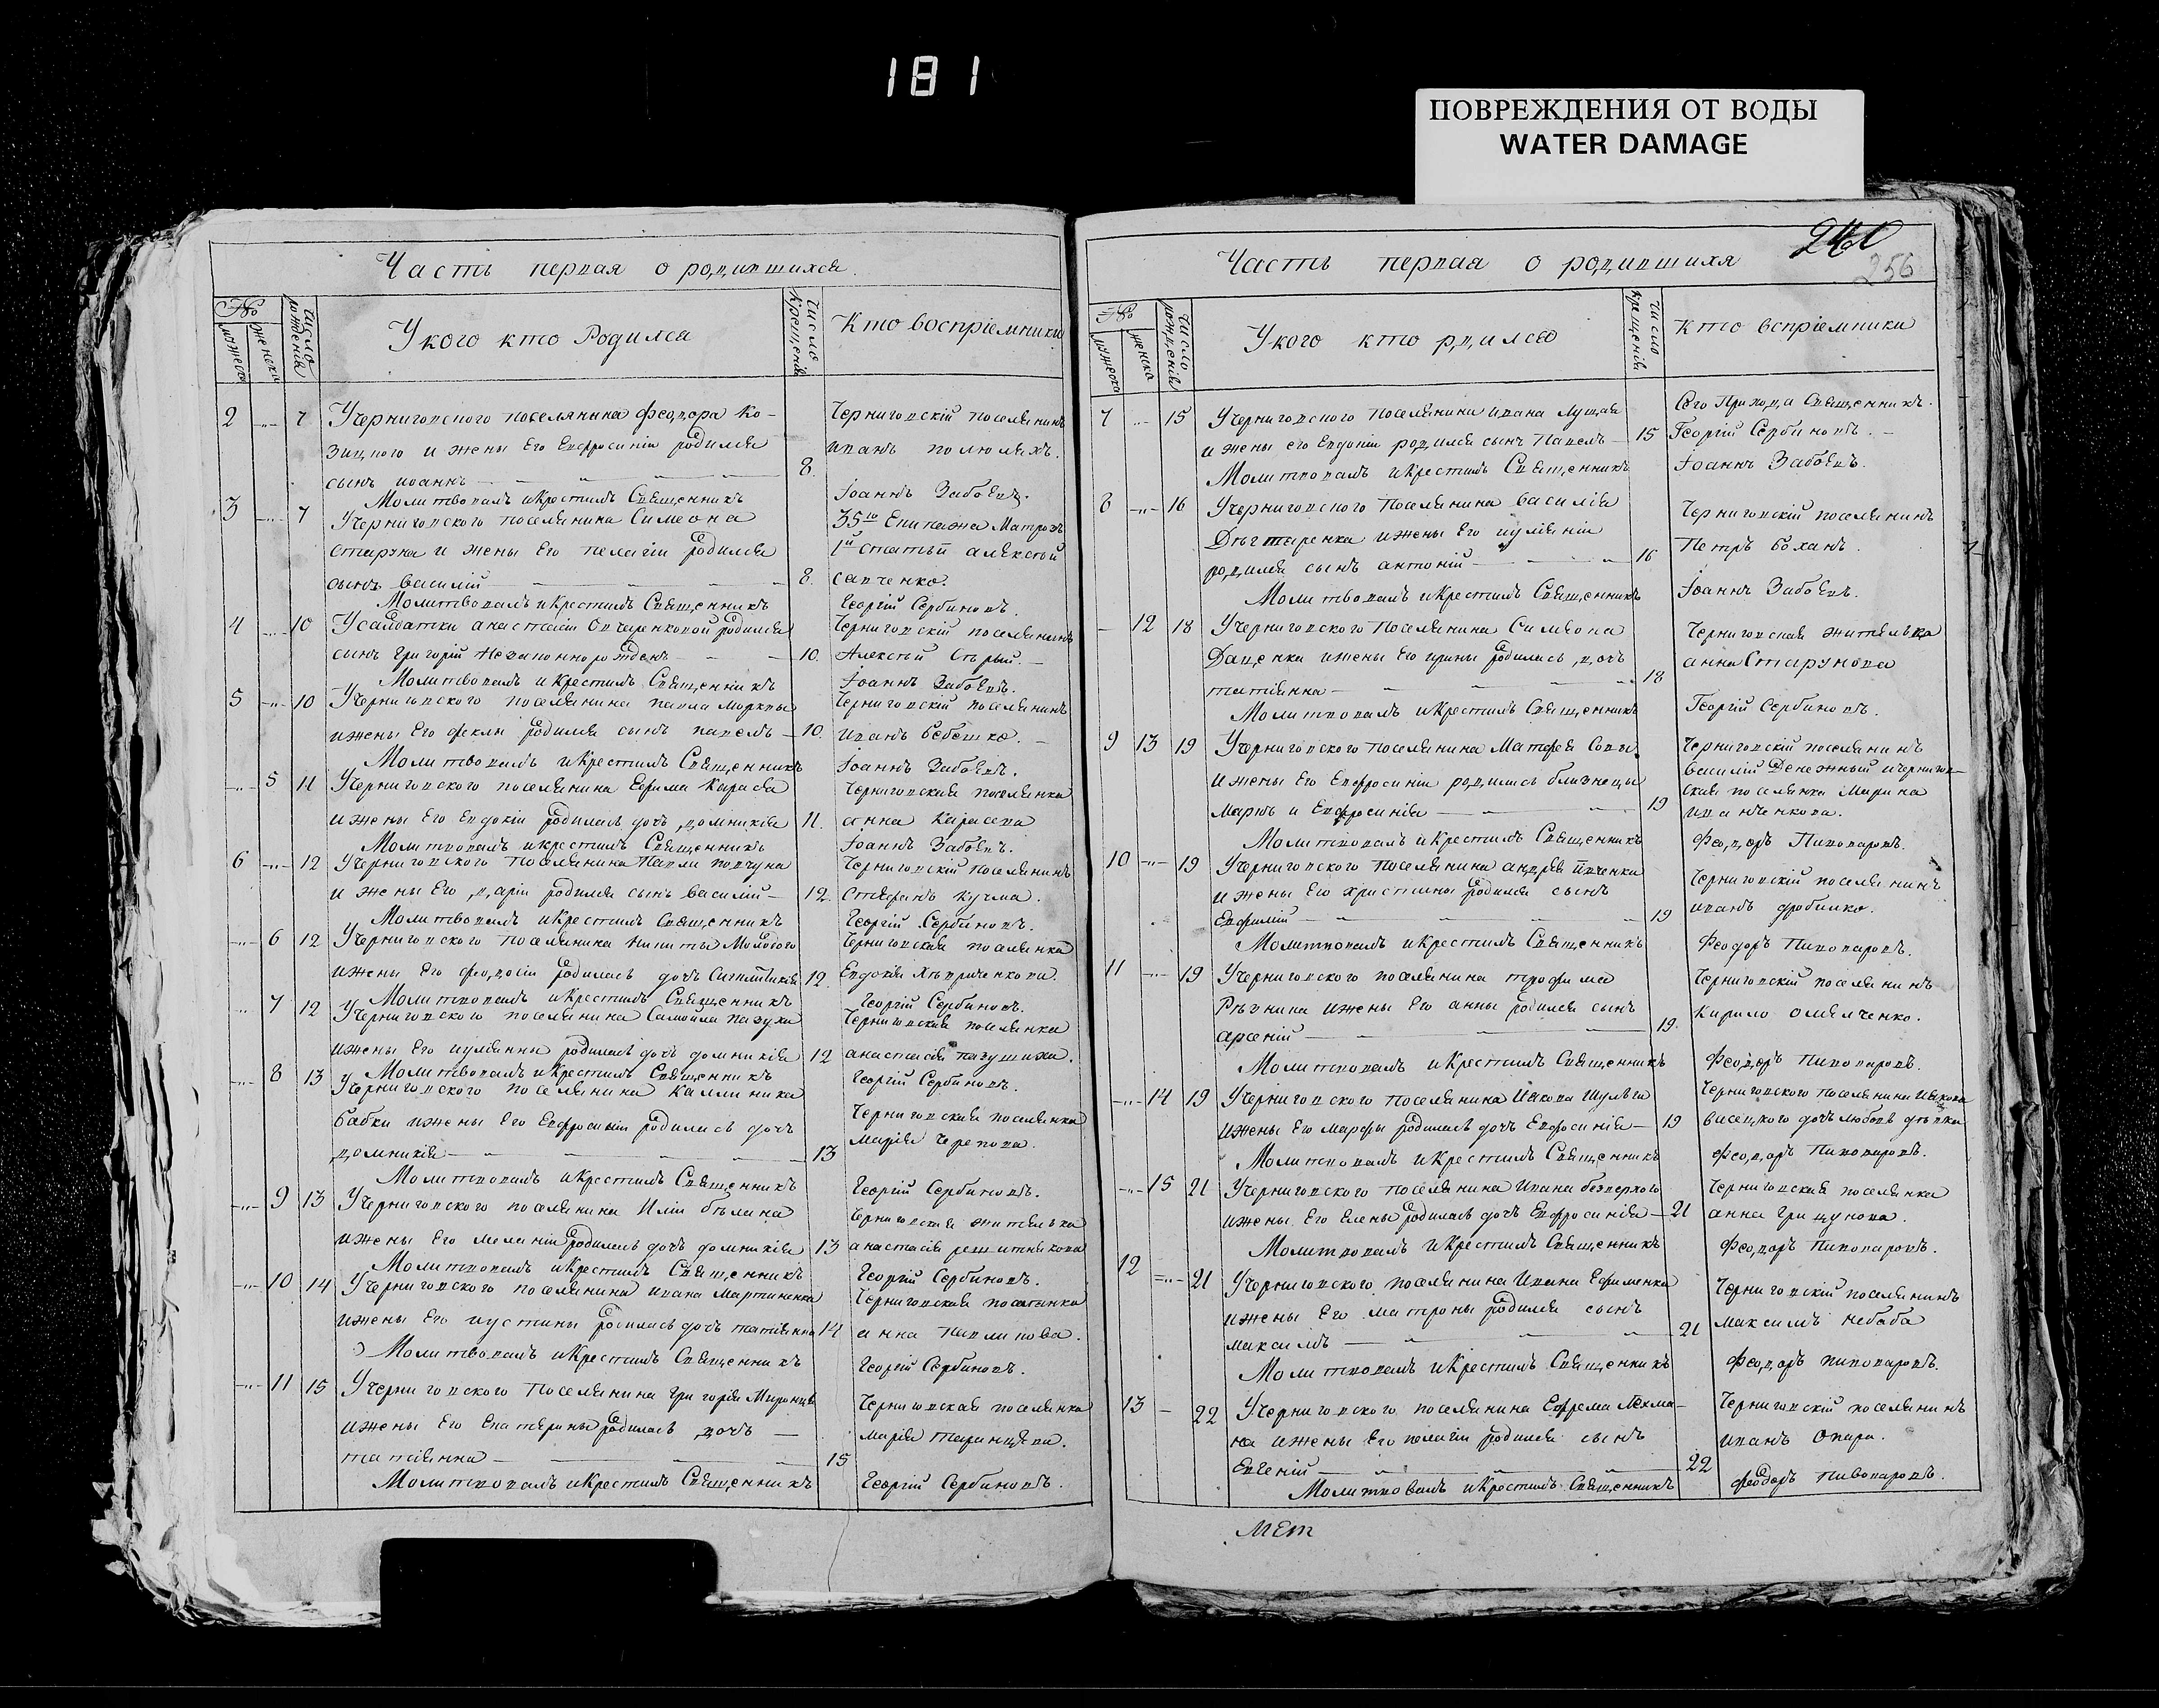 181
ПОВРЕЖДЕНИЯ ОТ ВОДЫ
WATER DAMAGE
Часть первая о родившихся.
№
мужеска
женска
Число рожденія
У кого кто Родился
Число Крещенія
Кто воспріемники
2 7 У Черниговского поселянина Феодора Ко-
зицкого и жены Его Евфросиніи родился
сынъ иоаннъ 8.
Черниговскій поселянинъ
иванъ полюляхъ.
Молитвовалъ и Крестилъ Священникъ Іоаннъ Забоевъ.
3 7 У Черниговского поселянина Симеона
и жены Его пелагіи родился
сынъ василій 8.
35го Екипажа Матрозъ
1й статьи алексѣй
савченко.
Молитвовалъ и Крестилъ Священникъ Георгій Сербиновъ.
4 10 У салдатки анастасіи Овчаренковой родился
сынъ григорій Незаконнорожденъ 10.
Черниговскій поселянинъ
Алексѣй Сѣрый.
Молитвовалъ и Крестилъ Священникъ Іоаннъ Забоевъ.
5 10 У Черниговского поселянина павла Морквы
и жены Его феклы родился сынъ павелъ 10.
Черниговскій поселянинъ
иванъ бебешко.
Молитвовалъ и Крестилъ Священникъ Іоаннъ Забоевъ.
5 11 У Черниговского поселянина Ефима Карася
и жены Его Евдокіи родилась дочь домникія 11.
Черниговская поселянка
анна Карасева
Молитвовалъ и крестилъ Священникъ Іоаннъ Забоевъ.
6 12 У Черниговского поселянина Павла повчуна
и жены Его даріи родился сынъ василій 12.
Черниговскій поселянинъ
стефанъ кучма.
Молитвовалъ и Крестилъ Священникъ Георгій Сербиновъ.
6 12 У Черниговского поселянина никиты Молодого
и жены Его феодосіи родилась дочь 12.
Черниговская поселянка
Евдокія
Молитвовалъ и Крестилъ Священникъ Георгій Сербиновъ.
7 12 У Черниговского поселянина Самойла пазуха
и жены Его иуліянны родилась дочь домникія 12
Черниговская поселянка
анастасія пазушиха.
Молитвовалъ и Крестилъ Священникъ Георгій Сербиновъ.
8 13 У Черниговского поселянина Каллиника
бабки и жены Его Евфросиніи родилась дочь
домникія 13
Черниговская поселянка
марія Черепова.
Молитвовалъ и Крестилъ Священникъ Георгій Сербиновъ.
9 13 У Черниговского поселянина Иліи бѣлана
и жены Его меланіи родилась дочь домникія 13
Черниговская жителька
анастасія решитнякова
Молитвовалъ и Крестилъ Священникъ Георгій Сербиновъ.
10 14 У Черниговского поселянина ивана Мартиненка
и жены Его иустины родилась дочь татіянна 14
Черниговская поселянка
анна павликова.
Молитвовалъ и Крестилъ Священникъ Георгій Сербиновъ.
11 15 У Черниговского Поселянина григорія Миронца
и жены Его Екатерины родилась дочь
татіянна 15
Черниговская поселянка
марія таранцева.
Молитвовалъ и Крестилъ Священникъ Георгій Сербиновъ.
256
Часть первая о родившихя
№
мужеска
женска
Число рожденія
У кого кто родился
Число крещенія
Кто вспріемники
7 15 У Черниговского поселянина ивана лущая
и жены его Евдокіи родился сынъ Павелъ 15
Сего Прихода Священникъ.
Георгій Сербиновъ.
Молитвовалъ и Крестилъ Священникъ Іоаннъ Забоевъ.
8 16 У Черниговского поселянина василія
Дѣгтяренка и жены Его иуліяніи
родился сынъ антоній 16
Черниговскій поселянинъ
Петръ боханъ.
Молитвовалъ и Крестилъ Священникъ Іоаннъ Забоевъ.
12 18 У Черниговского Поселянина Симеона
Даценка и жены Его ирины родилась дочь
татіянна 18
Черниговская жителька
анна Старунова
Молитвовалъ и Крестилъ Священникъ Георгій Сербиновъ.
9 13 19 У Черниговского поселянина Матфея Совы
и жены Его Евфросиніи родились близнецы
Маркъ и Евфросинія 19
Черниговскій поселянинъ
василій Денежный и чернигов-
ская поселянка Марина
иванченкова.
Молитвовалъ и Крестилъ Священникъ Феодоръ Пивоваровъ.
10 19 У Черниговского поселянина андрея ивченка
и жены Его христины родился сынъ
Евфимій 19
Черниговскій поселянинъ
иванъ дробилко.
Молитвовалъ и Крестилъ Священникъ Феодоръ Пивоваровъ.
11 19 У Черниговского поселянина трофима
Рѣзника и жены Его анны родился сынъ
арсеній 19.
Черниговскій поселянинъ
Кирило омелченко.
Молитвовалъ и Крестилъ Священникъ Феодоръ Пивоваровъ.
14 19 У Черниговского поселянина Иякова Шульги
и жены Его марфы родилась дочь Евфросинія 19
Черниговского поселянина Иякова
висецкого дочь любовь дѣвка
Молитвовалъ и Крестилъ Священникъ Феодоръ Пивоваровъ.
15 21 У Черниговского поселянина Ивана безверхого
и жены Его Елены родилась дочь Евфросинія 21
Черниговская поселянка
анна грицунова.
Молитвовалъ и Крестилъ Священникъ Феодоръ Пивоваровъ.
12 21 У Черниговского поселянина Ивана Ефименка
и жены Его матроны родился сынъ
максимъ 21
Черниговскій поселянинъ
максимъ небаба
Молитвовалъ и Крестилъ Священникъ Феодоръ пивоваровъ.
13 22 У Черниговского поселянина Ефрема Лехма-
на и жены Его пелагіи родился сынъ
Евгеній 22
Черниговскій поселянинъ
иванъ Опара.
Молитвовалъ и Крестилъ Священникъ феодоръ пивоваровъ.
МЕт